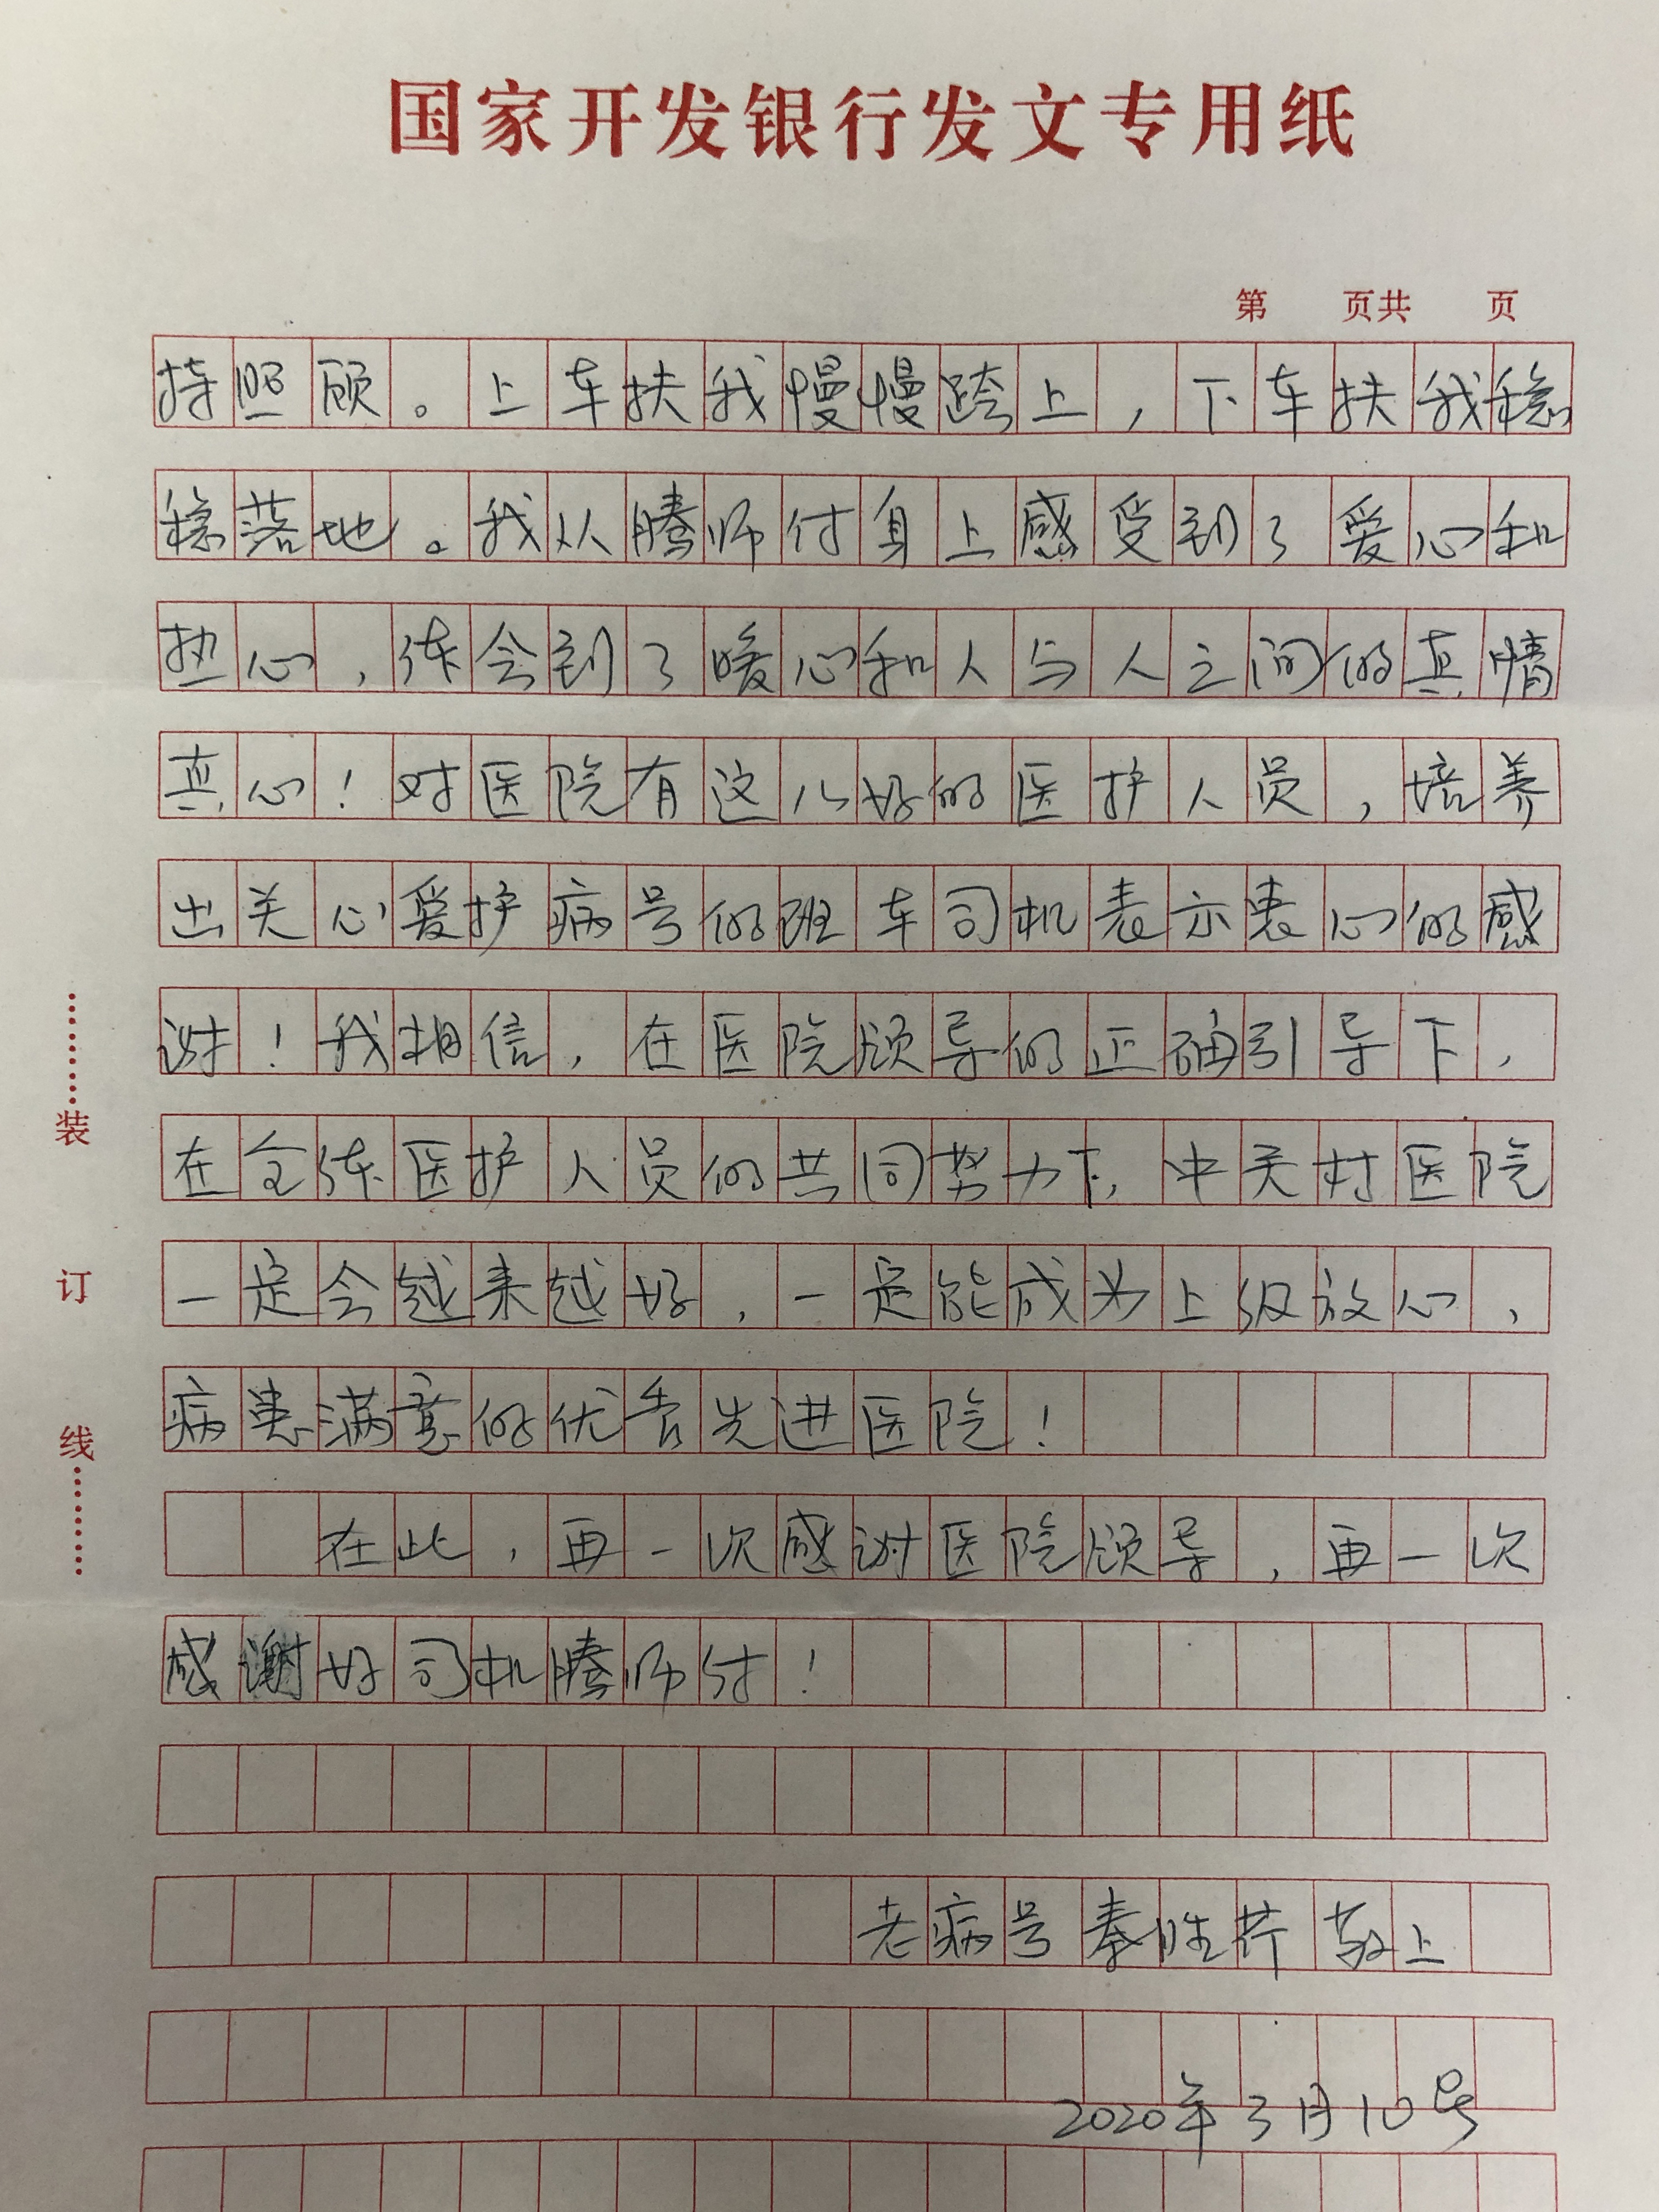 国家开发银行发文专用纸
第 页共 页
持照顾。上车扶我慢慢跨上,下车扶我稳
稳落地。我从腾师付身上感受到了爱心和
热心,体会到了暖心和人与人之间的真情
真心!对医院有这么好的医护人员,培养
出关心爱护病号的班车司机表示衷心的感
谢!我相信,在医院领导的正确引导下,
在全体医护人员的共同努力下,中关村医院
一定会越来越好,一定能成为上级放心,
病患满意的优秀先进医院!
在此,再一次感谢医院领导,再一次
感谢好司机腾师付!
老病号秦胜芹敬上
2020年3月10号
装
订
线